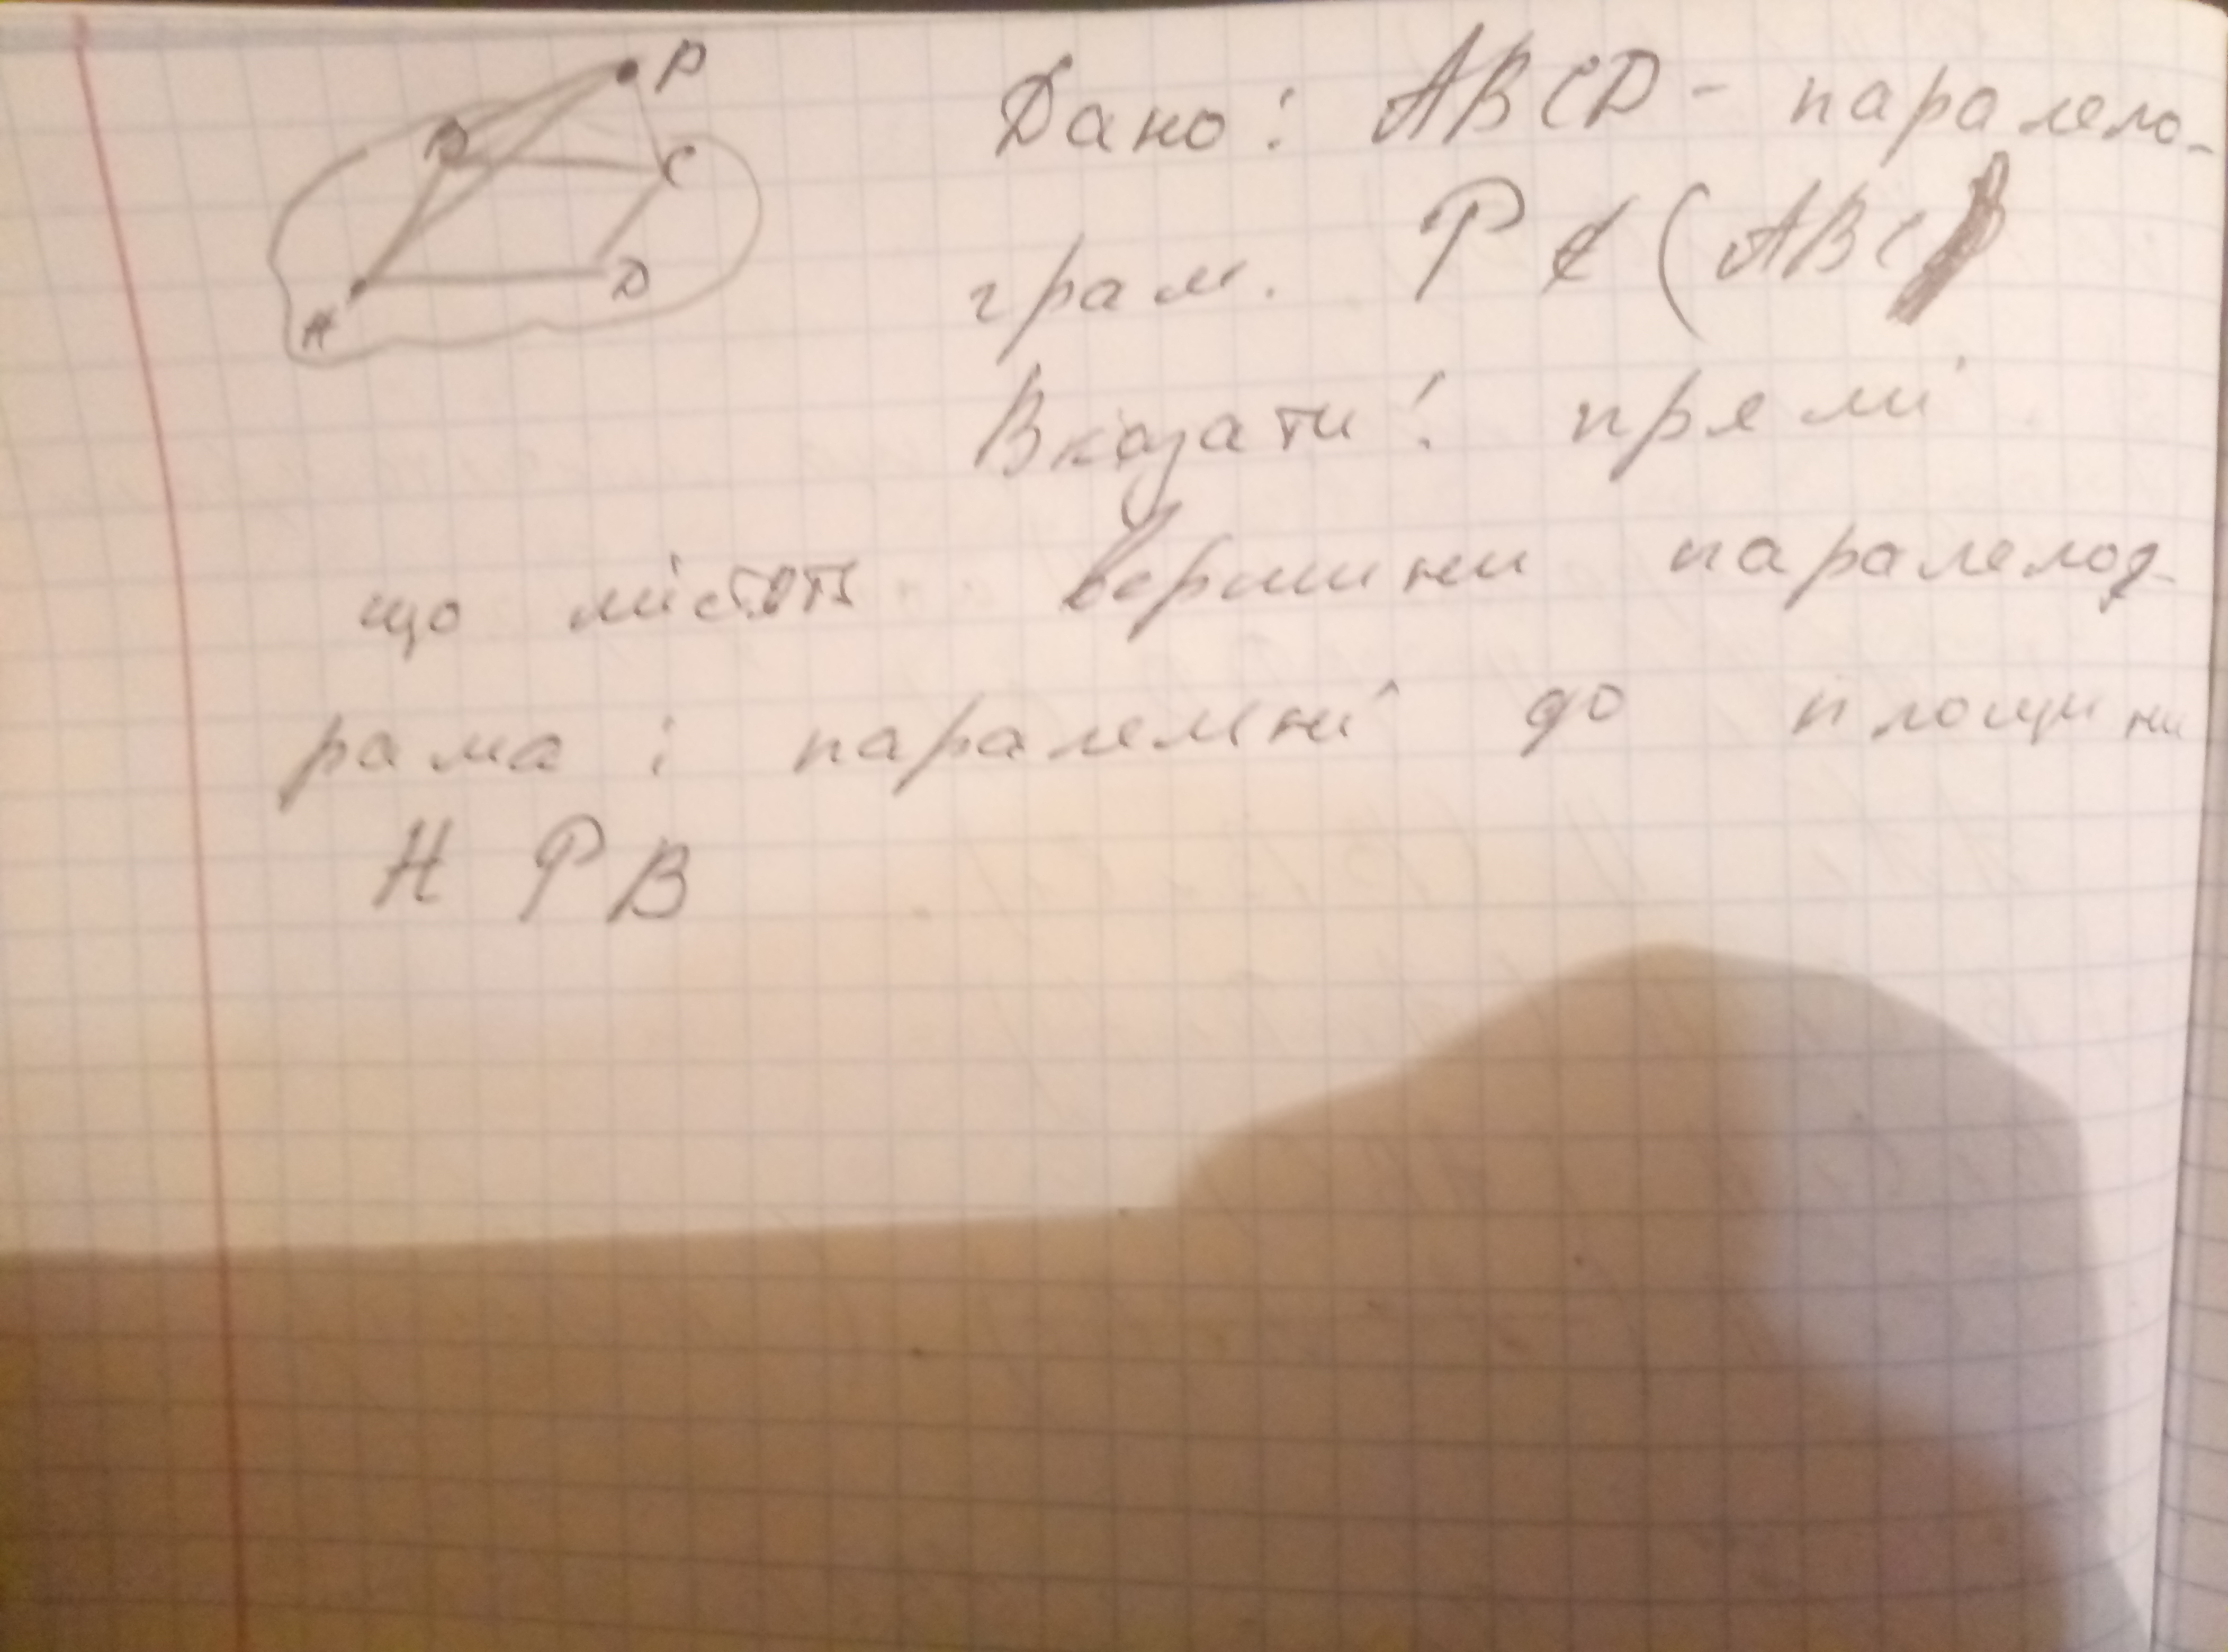 P
B
C
A
D
Дано: ABCD - паралело-
грам. P ∉ (ABC)
Вказати: прямі
що містять вершини паралелог-
рама і паралельні до площини
APB